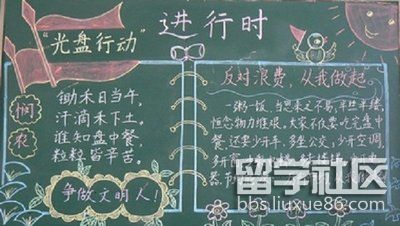 “光盘行动”
进行时
悯农
锄禾日当午,
汗滴禾下土。
谁知盘中餐,
粒粒皆辛苦。
争做文明人!
反对浪费,从我做起
一粥一饭,当思来之不易;半丝半缕,
恒念物力维艰。大家不仅要吃完盘中
餐,还要少开车,多坐公交,少开空调,
多开窗
器,节
留学社区
bbs.liuxue86.com